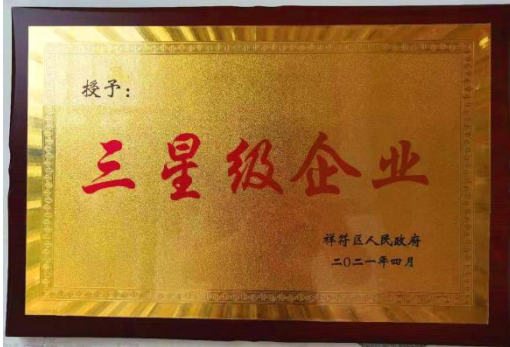 授予：
三星级企业
祥符区人民政府
二0二一年四月